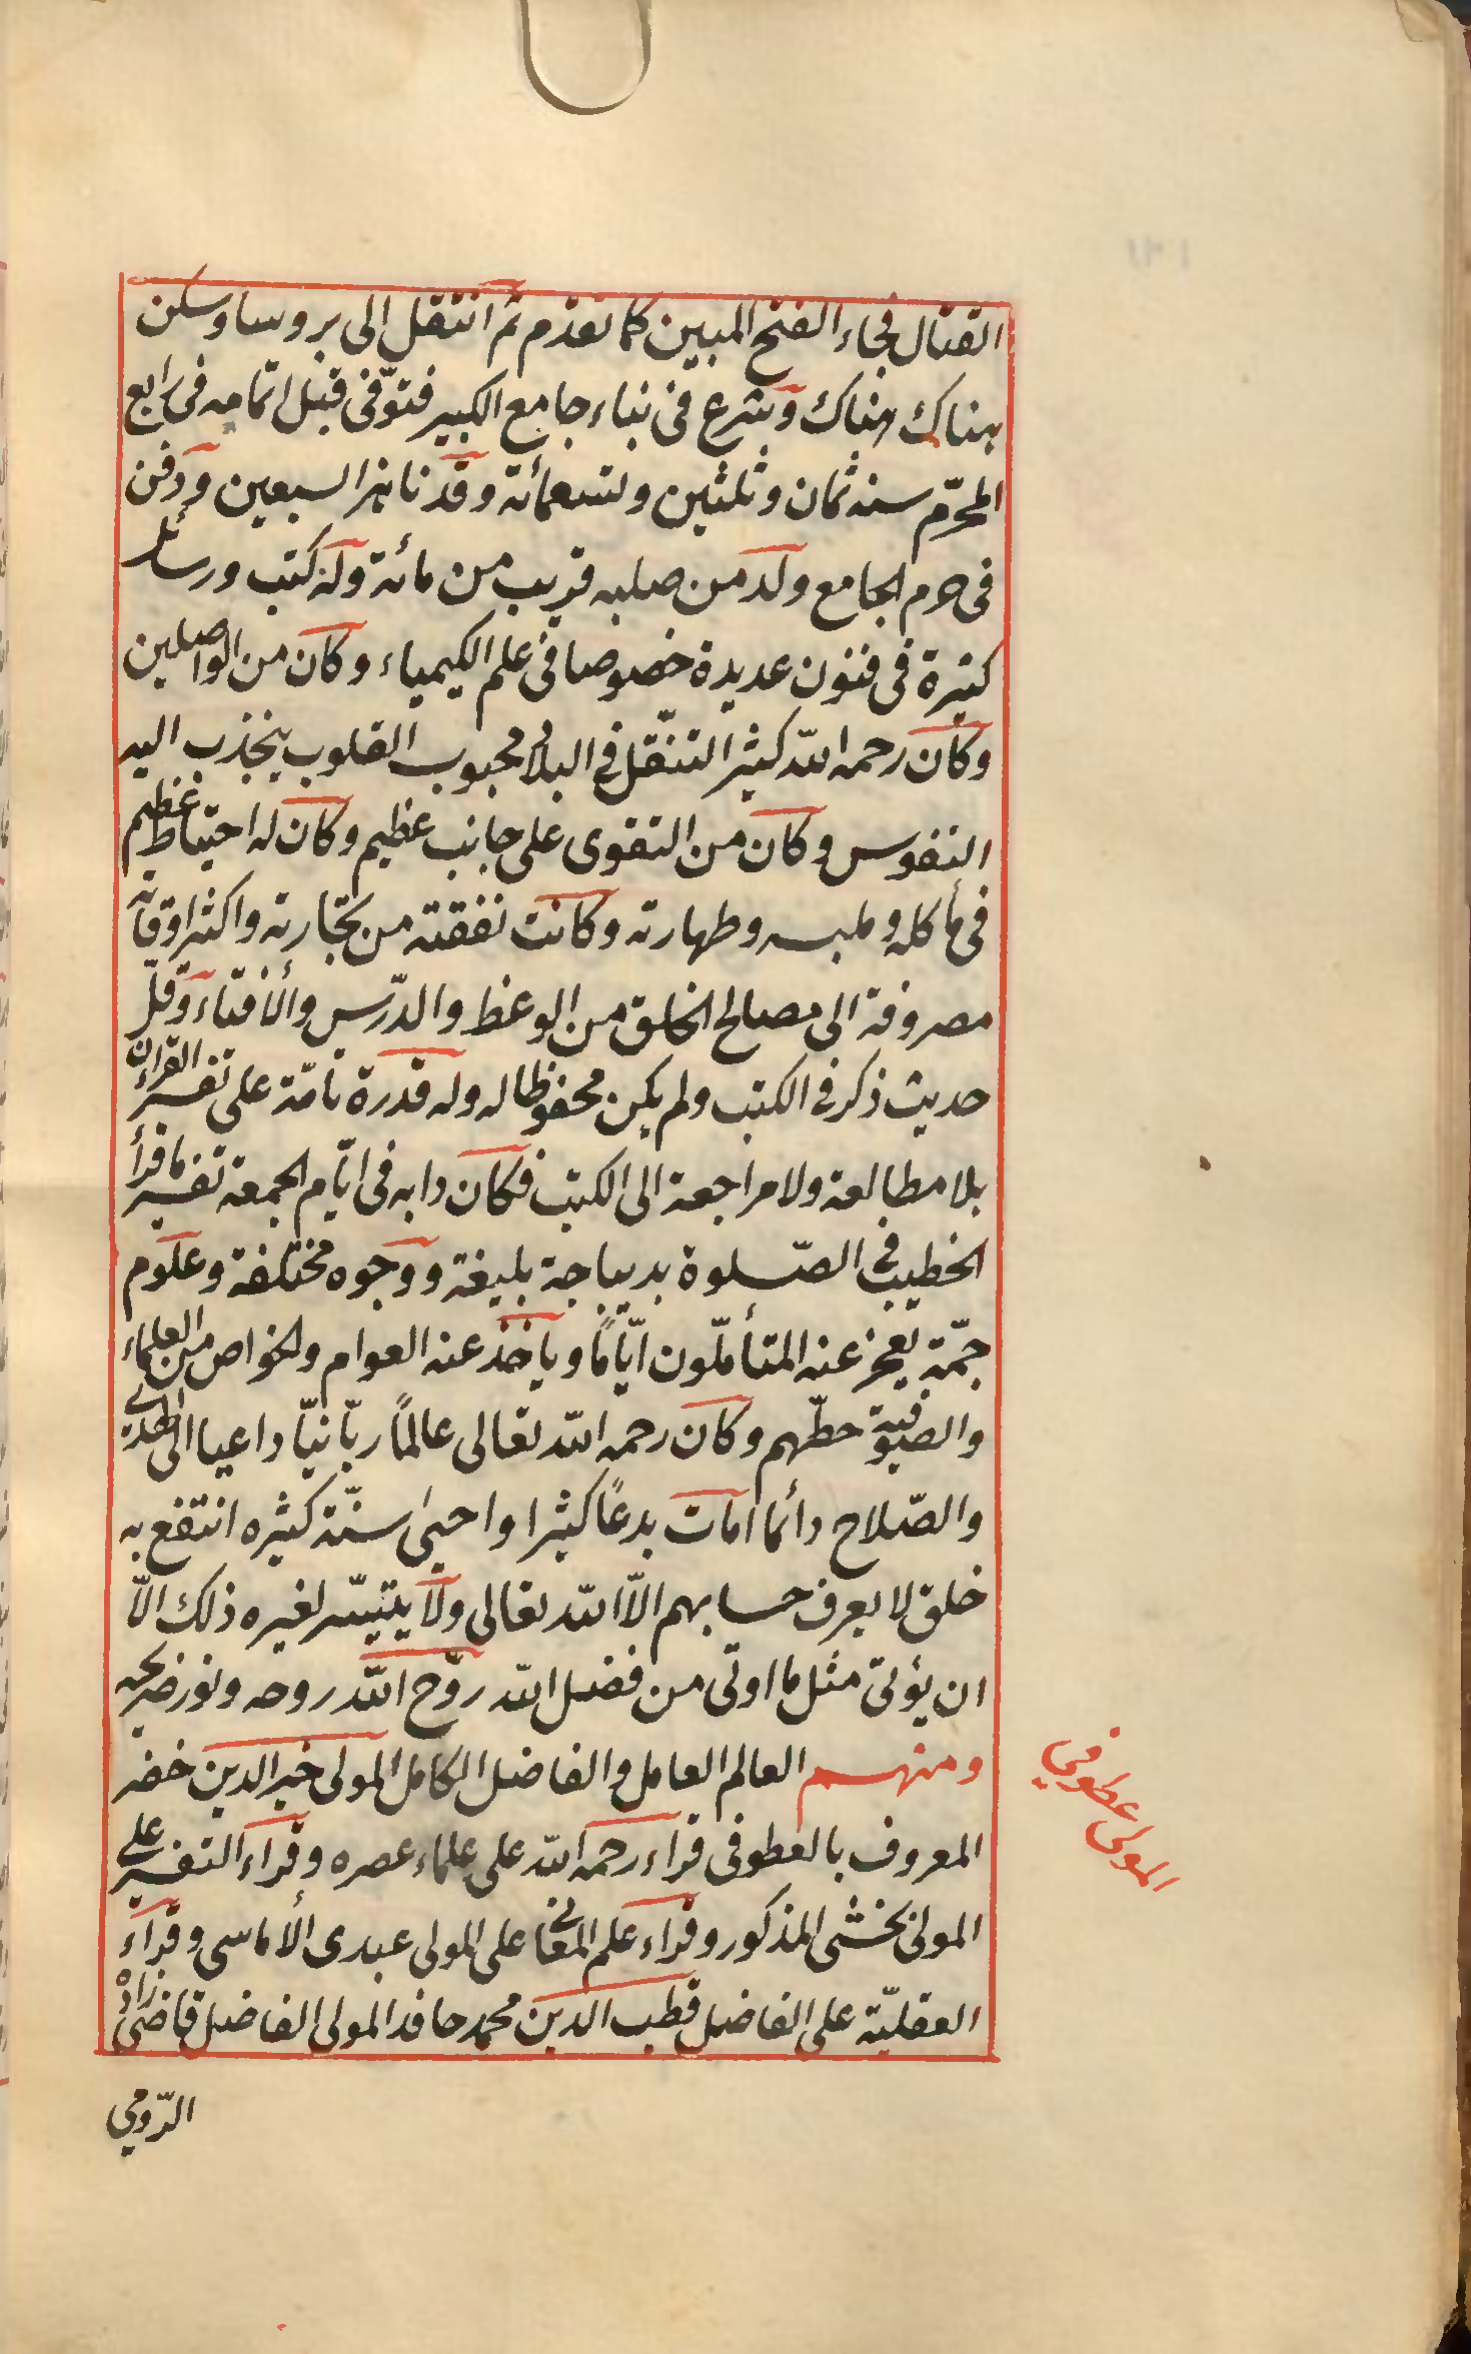 القتال فجاء الفتح المبين كما تقدم ثم انتقل الى بروسا وسكن
هناك هناك وشرع فى بناء جامع الكبير فتوّفى قبل اتمامه فى رابع
المحرّم سنه ثمان وثلثين وتسعمأئة وقد ناهز السبعين ودفن
فى حرم الجامع ولد من صلبه قريب من مائة وله كتب ورسائل
كثيرة فى فنون عديدة خصوصا فى علم الكيمياء وكان من الواصلين
وكان رحمه الله كثير التنقّل فى البلاد محبوب القلوب ينجذب اليه
النفوس وكان من التقوى على جانب عظيم وكان له احتياط عظيم
فى مأكله وملبسه وطهارته وكانت نفقته من تجارته واكثر اوقاته
مصروفة الى مصالح الخلق من الوعظ والدّرس والأفتاء وقلّ
حديث ذكر فى الكتب ولم يكن محفوظا له وله قدرة تامّة على تفسير القرأن
بلا مطالعة ولا مراجعة الى الكتب فكان دابه فى ايّام الجمعة تفسير ما قرأ
الخطيب فى الصّلوة بديباجة بليغة ووجوه مختلفة وعلوم
جمّة يعجز عنه المتأملّون ايّامًا وياخذ عنه العوام والخواص من العلماء
والصوفية حظّهم وكان رحمه الله تعالى عالمًا ربّانيّا داعيا الى الهدى
والصّلاح دائما امات بدعًا كثيرا واحيى سنّة كثيره انتفع به
خلق لا يعرف حسابهم الاّ الله تعالى ولا يتيسّر لغيره ذلك الاّ
ان يؤتى مثل ما اوتى من فضل الله روّح الله روحه ونور ضريحه
ومنهم العالم العامل والفاضل الكامل المولى خير الدين خضر
المعروف بالعطوفى قراء رحمه الله على علماء عصره وقراء التفسير على
المولى بخشى المذكور وقراء علم المعانى على المولى عبدى الأماسى وقراء
العقليّة على الفاضل قطب الدين محمد حافد المولى الفاضل قاضى زاده
الرّومي
المولى عطوفي